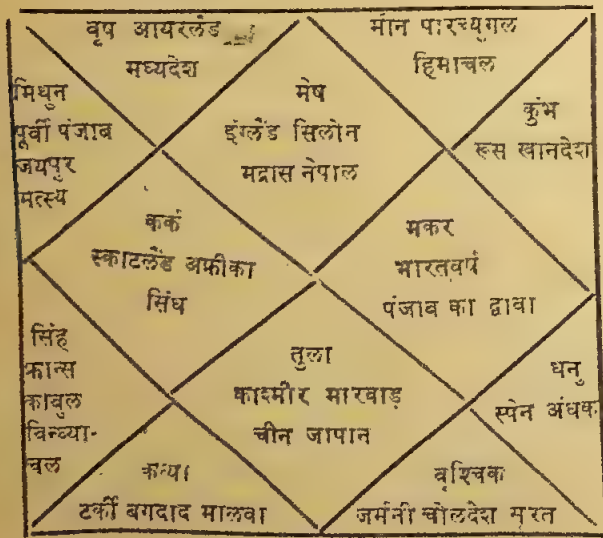 वृष आयरलेंड
मध्यदेश
मीन पारच्युगल
हिमाचल
मेष
इंग्लेंड सिलोन
मद्रास नेपाल
मिथुन
पूर्वी पंजाब
जयपुर
मत्स्य
कुंभ
रूस खानदेश
कर्क
स्काटलेंड अफ्रीका
सिंध
मकर
भारतवर्ष
पंजाब का द्वावा
सिंह
फ्रान्स
काबुल
विन्ध्या-
चल
तुला
काश्मीर मारवाड़
चीन जापान
धनु
स्पेन अंधक
कन्या
टर्की बगदाद मालवा
वृश्चिक
जर्मनी चोलदेश सूरत